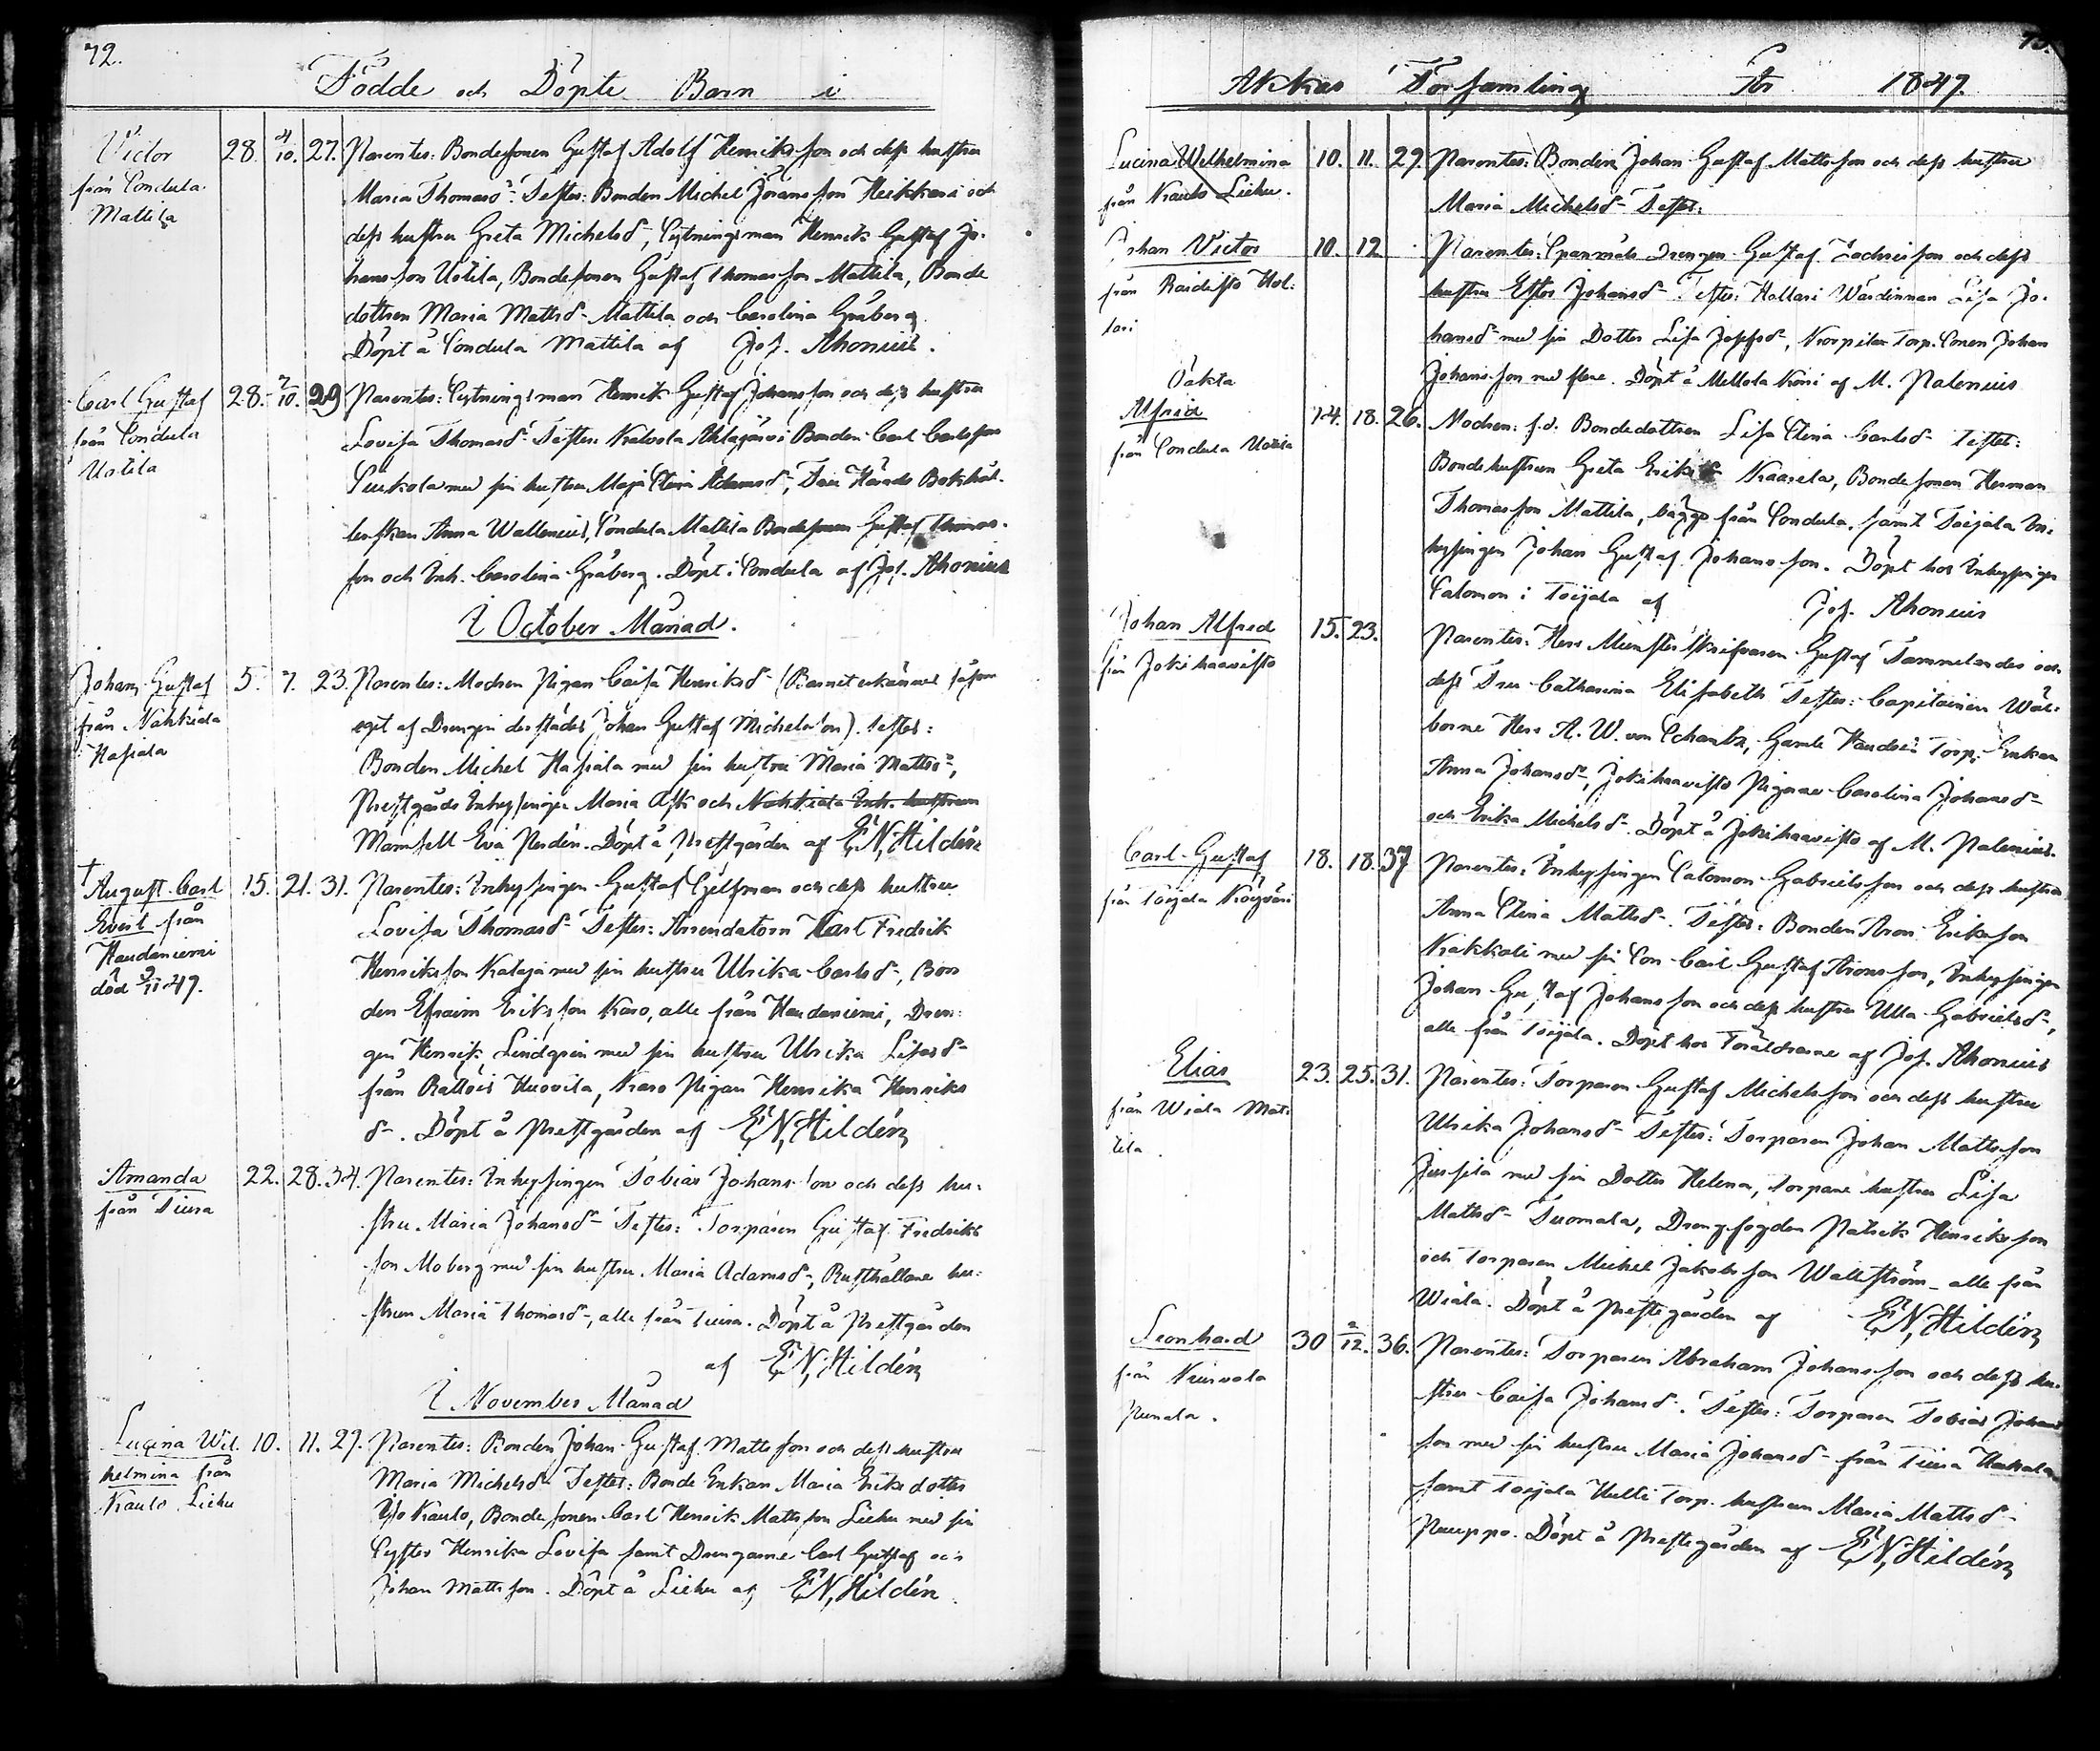 72.
Födde och Döpte Barn i
Victor
från Sondula
Mattila
28. 4/10. 27.
Parentes: Bondesonen Gustaf Adolf Henriksson och dess hustru
Maria Thomasd:r Testes: Bonden Michel Johansson Heikkari och
dess hustru Greta Michelsd:r, Sytningsman Henrik Gustaf Jo-
hansson Uotila, Bondesonen Gustaf Thomasson Mattila, Bonde
dottren Maria Mattsd:r Mattila och Carolina Gråberg
Döpt å Sondula Mattila af Jos. Ahonius.
Carl Gustaf
från Sondula
Uotila
28. 2/10. 29
Parentes: Sytningsman Henrik Gustaf Johansson och dess hustru
Lovisa Thomasd:r Testes: Kalvola Ahlajärvi Bonden Carl Carlsson
med sin hustru Maja Stina Adamsd:r, Härads Bokhål-
lerskan Anna Wallenius, Sondula Mattila Bondesonen Gustaf Thomas-
son och Inh. Carolina Gråberg. Döpt i Sondula af Jos. Ahonius
I October Månad.
Johan Gustaf
från Nahkiala
Hapiala
5. 7. 23.
Parentes: Modren Pigan Caisa Henriksd:r (Barnet erkännes såsom
eget af Drengen derstädes Johan Gustaf Michelsson). Testes:
Bonden Michel Hapiala med sin hustru Maria Mattsd:r,
Prestgårds Inhysingen Maria Ask och Nahkiala Inh. hustrun
Mamsell Eva Perdén. Döpt å Prestgården af E N, Hildén
† August Carl
Evert från
Haudaniemi
död 3/11 47.
15. 21. 31.
Parentes: Inhysingen Gustaf Sjelfman och dess hustru
Lovisa Thomasd:r Testes: Arrendatorn Karl Fredrik
Henriksson Kataja med sin hustru Ulrika Carlsd:r, Bon
den Efraim Eriksson Karo, alle från Haudaniemi, Dren-
gen Henrik Lindgren med sin hustru Ulrika Lisasd:r
från Rattois Huovila, Karo Pigan Henrika Henriks
d:r. Döpt å Prestgården af E N, Hildén
Amanda
från Viura
22. 28. 34.
Parentes: Inhysingen Tobias Johansson och dess hu-
stru Maria Johansd:r Testes: Torparen Gustaf Fredriks
son Moberg med sin hustru Maria Adamsd:r, Rusthållare hu-
strun Maria Thomasd:r, alle från Viura. Döpt å Prestgården
af E N, Hildén
I November Månad
Lucina Wil-
helmina från
Kaulo Lieku
10. 11. 29.
Parentes: Bonden Johan Gustaf Mattsson och dess hustru
Maria Michelsd:r Testes: Bonde Enkan Maria Eriksdotter
Kaulo, Bondesonen Carl Henrik Mattsson Lieku med sin
Syster Henrika Lovisa samt Drengarne Carl Gustaf och
Johan Mattsson. Döpt å Lieku af E N, Hildén.
73.
Akkas Församling År 1847.
Lucina Wilhelmina
från Kaulo Lieku.
10. 11. 29.
Parentes: Bonden Johan Gustaf Mattsson och dess hustru
Maria Michelsd:r Testes:
Johan Victor
från Raidisto Hol-
lari
10. 12
Parentes: Spanmåls Drengen Gustaf Zachrisson och dess
hustru Ester Johansd:r Testes: Hallari Wärdinnan Lisa Jo-
hansd:r med sin Dotter Lisa Josefsd:r, Torp. Sonen Johan
Johansson med flere. Döpt å Mellola Kroni af M. Palenius
Oäkta
Alfrid
från Sondula Uotila
14. 18. 26.
Modren: f.d. Bondedottren Lisa Stina Carlsd:r Testes:
Bondehustrun Greta Eriksd:r Kaarela, Bondesonen Herman
Thomasson Mattila, bägge från Sondula, samt Toijala In-
hysingen Johan Gustaf Johansson. Döpt hos Inhysingen
Salomon i Toijala af Jos. Ahonius
Johan Alfred
från Jokihaavisto
15. 23.
Parentes: Herr Mönsterskrifvaren Gustaf Tammelander och
dess Fru Catharina Elisabeth Testes: Capitainen Wäl-
borne Herr A. W. von Schantz, Gamle Torp. Enkan
Anna Johansd:r, Jokihaavisto Pigorne Carolina Johansd:r
och Erika Michelsd:r. Döpt å Jokihaavisto af M. Palenius.
Carl Gustaf
från Toijala
18. 18. 37
Parentes: Inhysingen Salomon Gabrielsson och dess hustru
Anna Stina Mattsd:r. Testes: Bonden Aron Eriksson
Kakkoli med sin Son Carl Gustaf Aronsson, Inhysingen
Johan Gustaf Johansson och dess hustru Ulla Gabrielsd:r,
alle från Toijala. Döpt hos Föräldrarne af Jos. Ahonius
Elias
från Wiala Mat-
tila
23. 25. 31.
Parentes: Torparen Gustaf Michelsson och dess hustru
Ulrika Johansd:r Testes: Torparen Johan Mattsson
Jussila med sin Dotter Helena, Torpare hustrun Lisa
Mattsd:r Tuomala, Drengfogden Patrik Henriksson
och Torparen Michel Jakobsson Wallström alle från
Wiala. Döpt å Prestegården af E N, Hildén
Leonhard
från Kurvola
Punala.
30 2/12. 36.
Parentes: Torparen Abraham Johansson och dess hu-
stru Caisa Johansd:r. Testes: Torparen Tobias Johans
son med sin hustru Maria Johansd:r från Viura
samt Toijala Hulli Torp. hustrun Maria Mattsd:r
Pauppo. Döpt å Prestegården af E N, Hildén